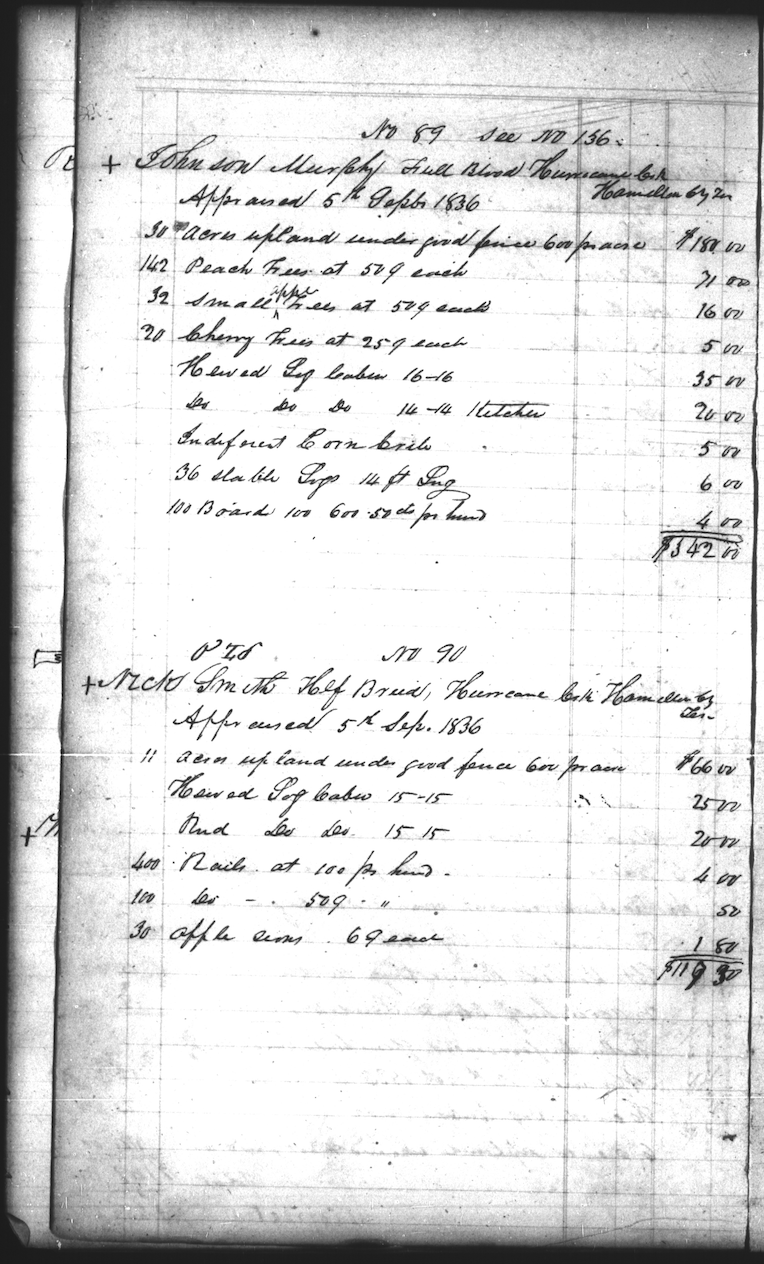 No 89 See No 136
+ Johnson Murphy Full Blood Hurricane Crk
Hamilton Cy Ten
Appraised 5th Septr 1836
30 acres upland under good fence 600 pr acre $180 00
142 Peach Trees at 50¢ each 71 00
32 Small appe Trees at 50¢ each 16 00
20 Cherry Trees at 25¢ each 5 00
Hewed Log Cabin 16-16 35 00
Do Do Do 14-14 Kitchen 20 00
Indiferent Corn Crib 5 00
36 Stable Logs 14 ft Lng 6 00
100 Boards 100 600 50cts pr hund 4 00
$342 00
No 90
+ Nick Smith Half Breed, Hurricane Crk Hamilton Cy
Ten-
Appraised 5th Sep. 1836
11 acres upland under good fence 600 pr acre $66 00
Hewed Log Cabin 15-15 25 00
Rnd Do Do 15 15 20 00
400 Rails at 100 pr hund - 4 00
100 Do - 50¢ " 50
30 apple 6¢ each 1 80
+